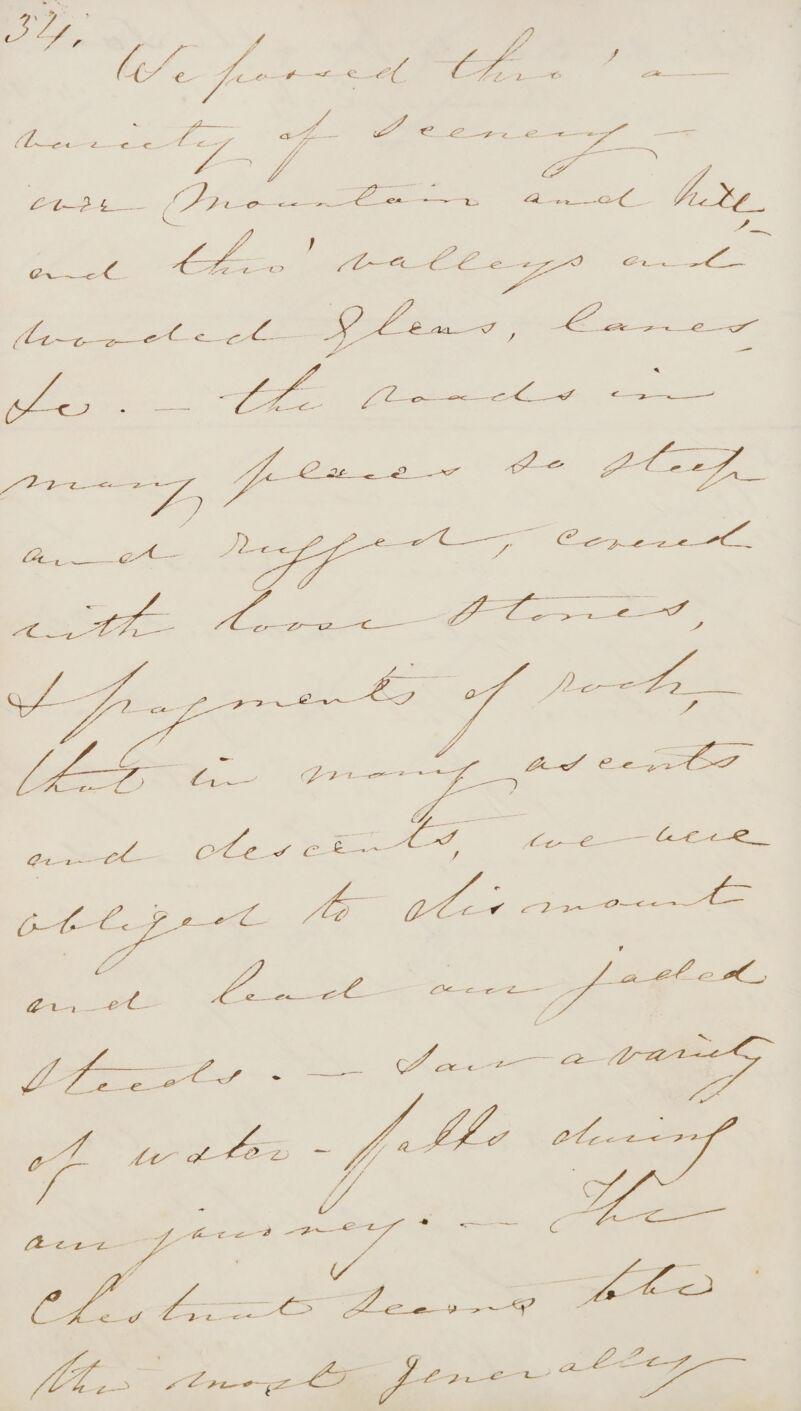 34.
We passed thro' a
variety of Scenery —
over Mountain and hill,
and thro' valleys and
wooded Glens, lanes
&c. — the roads in
many places so steep
and rugged, covered
with loose stones,
& fragments of rock,
that in many ascents
and descents, we were
obliged to dismount
and lead our jaded
steeds. — Saw a variety
of water-falls during
our journey. — The
Chestnut seems to be
the most generally